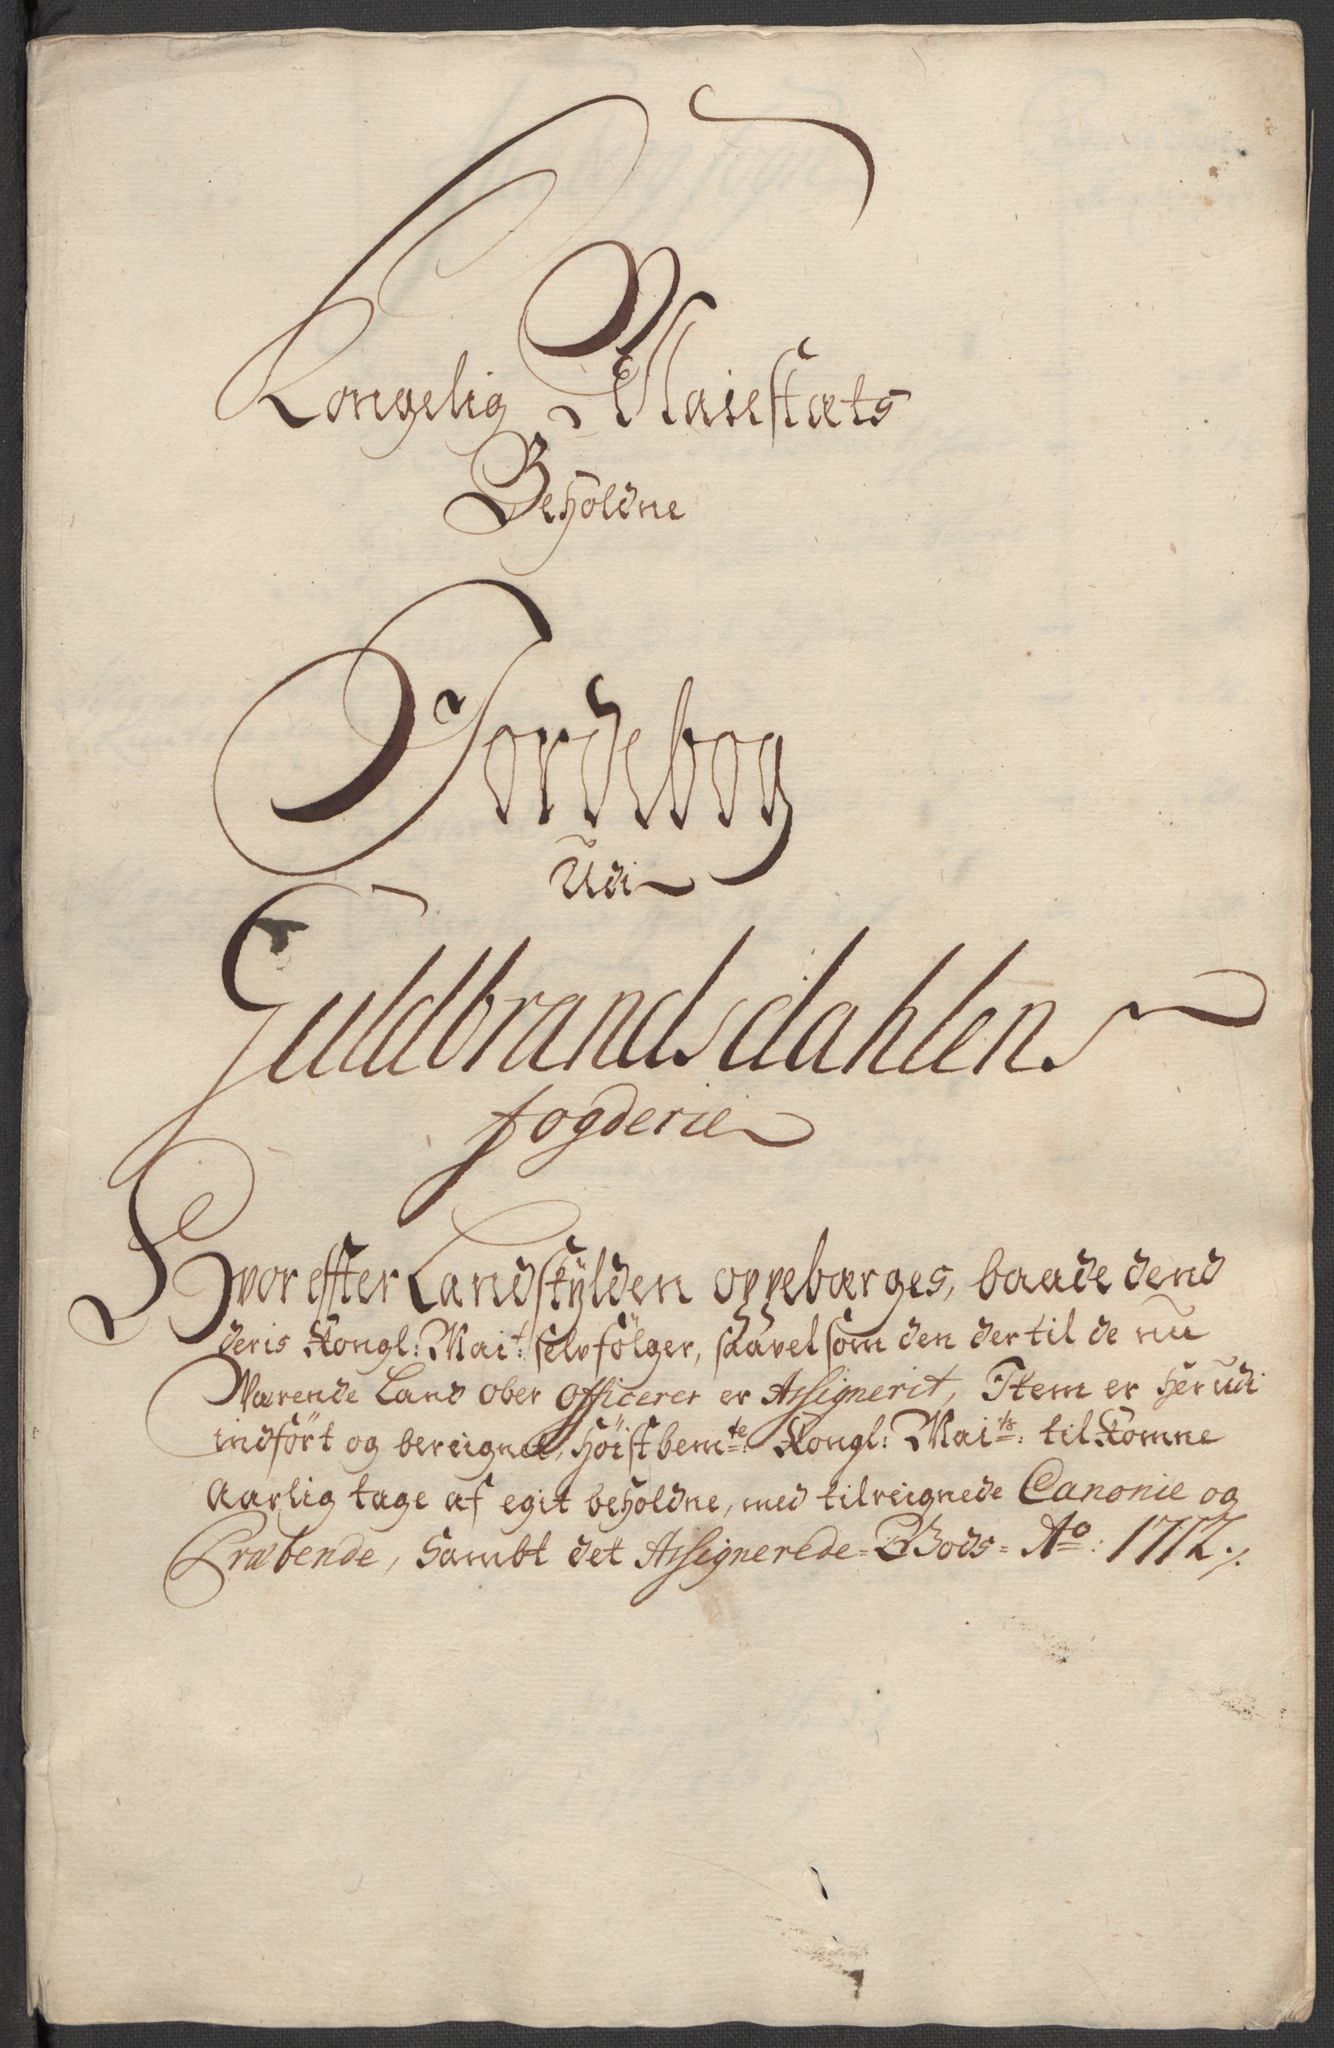 Kongelig Maiestæts
Beholdne
Jordebog
Udi
Guldbrandsdahlens
fogderie
Hvorefter Landskylden oppebærges, baade dend
deris Kongl: Mait: selv følger, saavelsom den der til de nu
Værende Land ober Officerer er Assignerit, Item er her udi
indført og bereignet, Høistbemte: Kongl: Maits: til Komne
Aarlig tage af egit beholdne, med tilreignede Canonie og
Præbende, Sambt det Assignerede=Gods= Ao: 1712./.